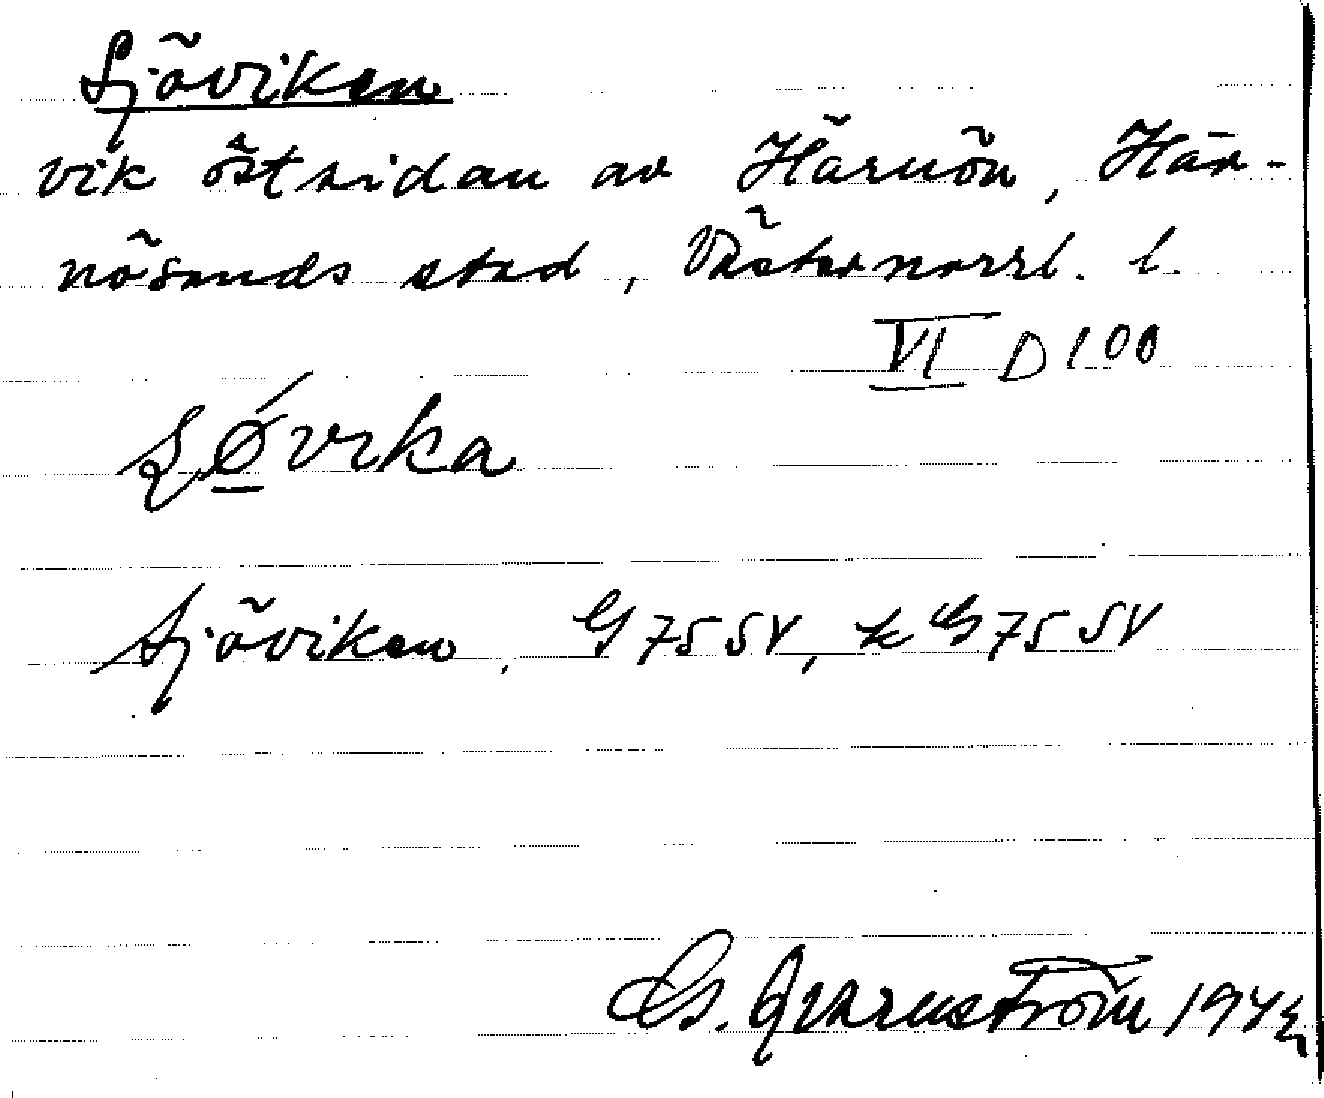 Sjöviken
vik östsidan av Härnön, Här-
nösands stad, Västernorrl. l.
VI D 100
Sjöviken, G 75 SV, k G 75 SV
G. Qvarnström 194